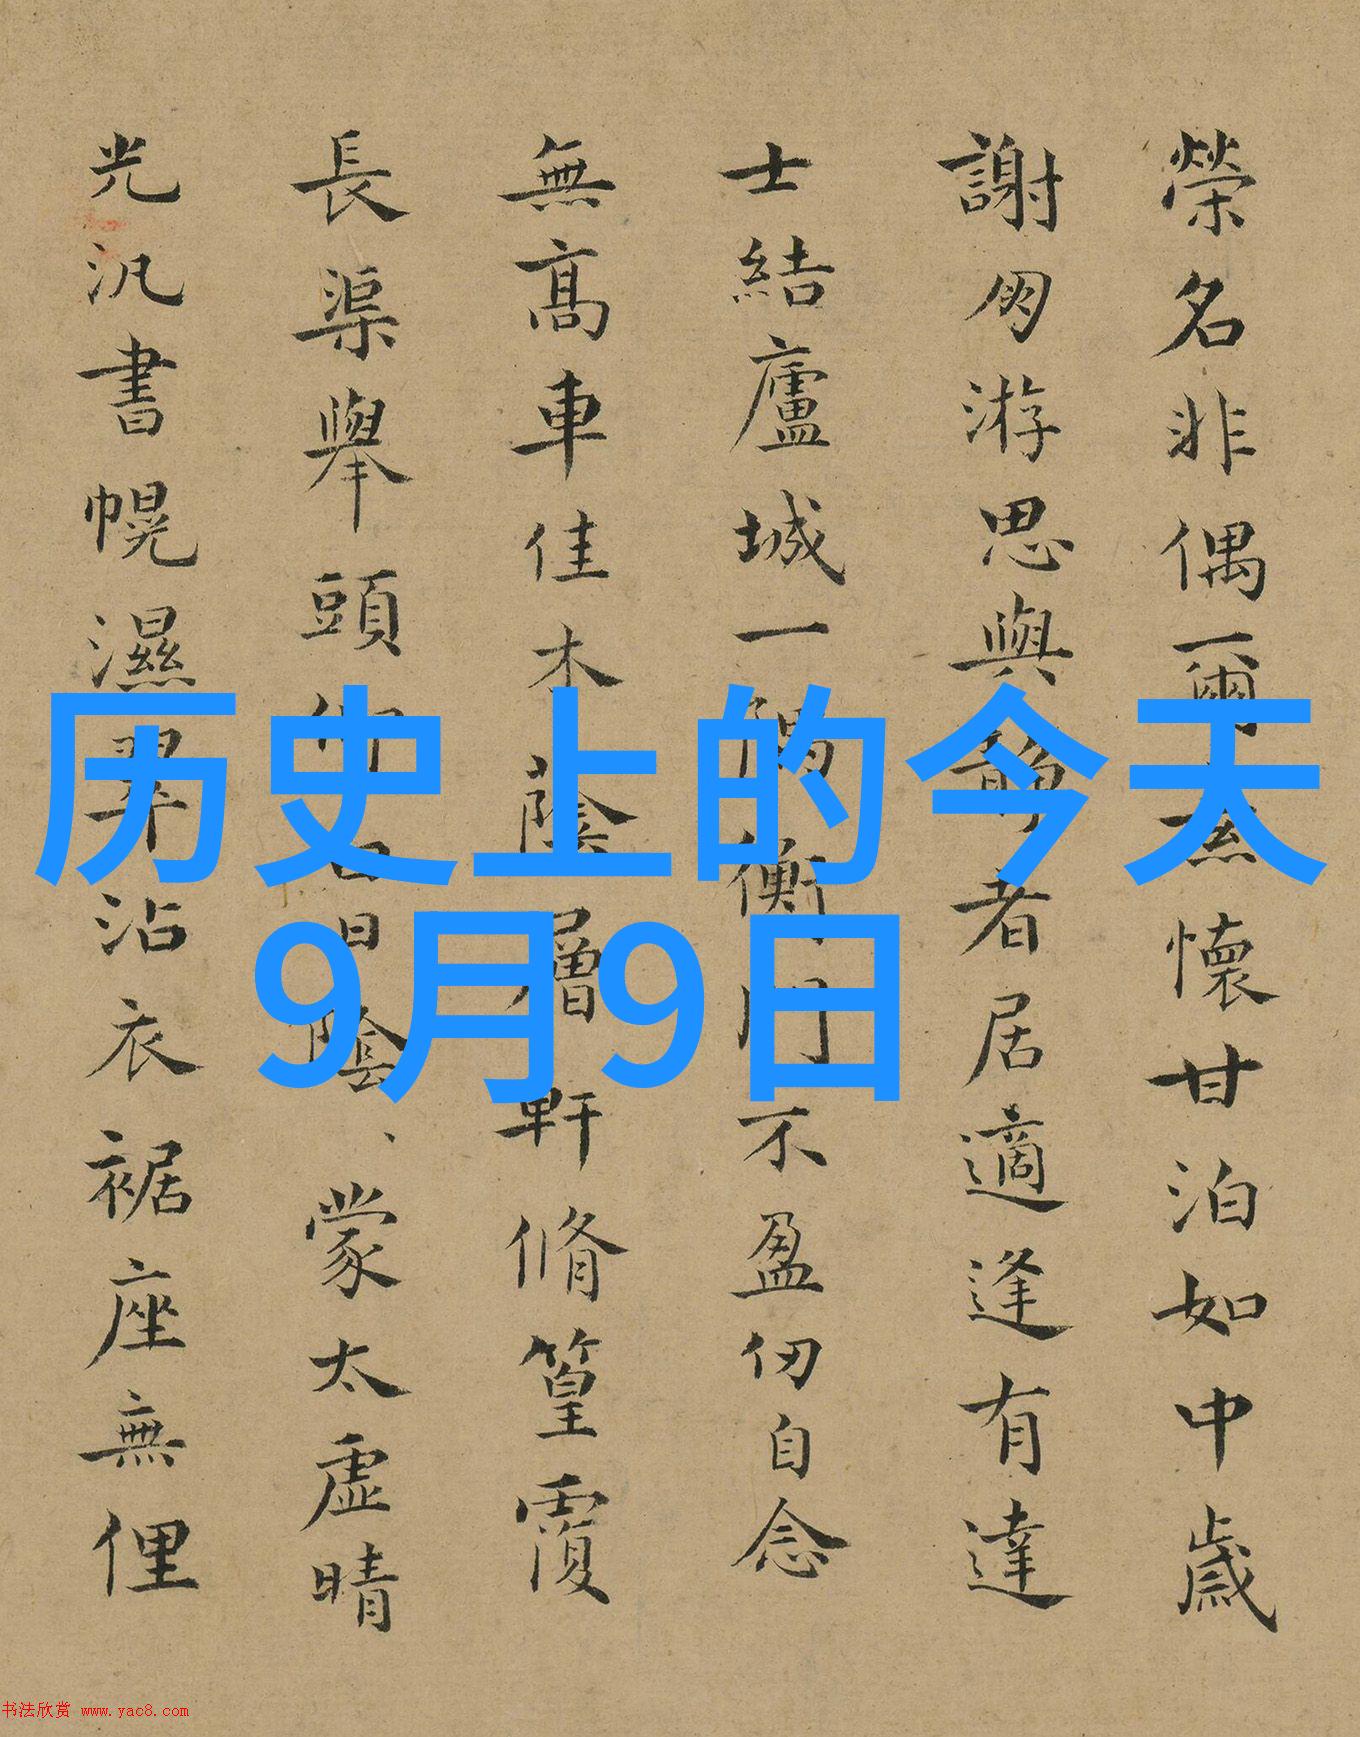 历史上的今天
9月9日
榮名非偶爾無懷甘泊如中歲
謝朋游思與静者居適逢有達
士結廬城一隅衡門不盈仞自念
無髙車佳木蔭層軒脩篁覆
長渠舉頭仰白日陰、蒙太虛晴
光汎書幌濕翠沾衣裾座無俚
书法欣赏 www.yac8.com